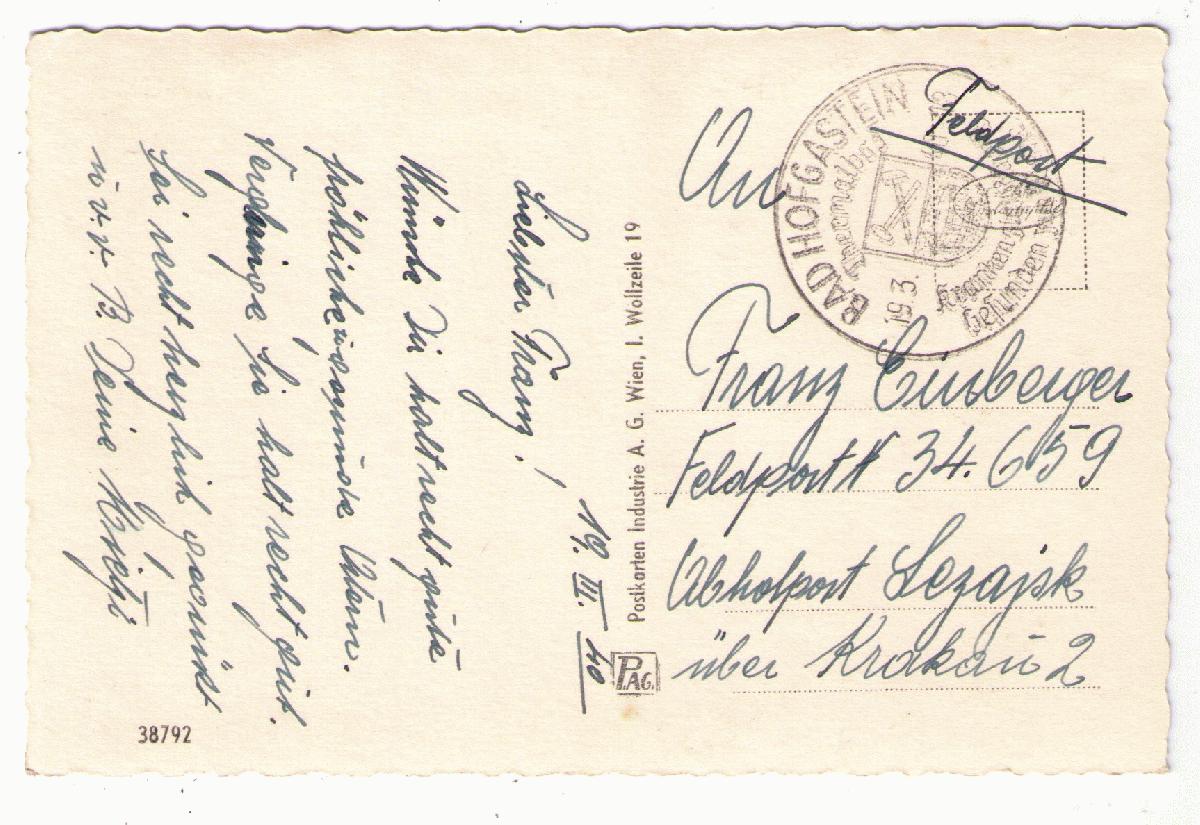 19. III. 40
Liebster Franz!
Wünsche Dir halt recht gute
fröhliche u. gesunde Ostern.
Verbringe Sie halt recht gut.
Sei recht herzlich gegrüßt
u. v. v. B. Deine
38792
Postkarten Industrie A. G. Wien, I. Wollzeile 19
PAG.
Feldpost
BAD HOFGASTEIN
19.3.
Kranken
Gesunden
An
Franz
Feldpost N 34.659
Abholpost Lezajsk
über Krakau 2